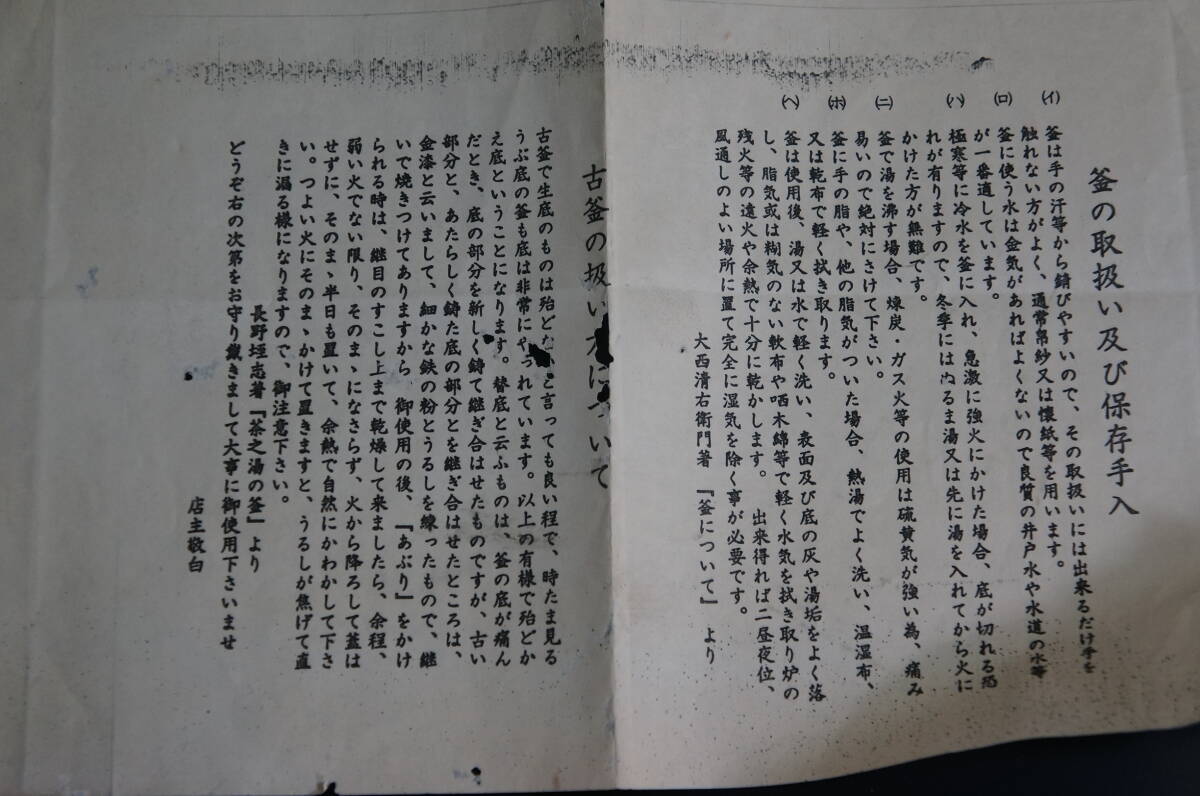 釜の取扱い及び保存手入
(イ) 釜は手の汗等から錆びやすいので、その取扱いには出来るだけ手を
触れない方がよく、通常帛紗又は懐紙等を用います。
(ロ) 釜に使う水は金気があればよくないので良質の井戸水や水道の水等
が一番適しています。
(ハ) 極寒等に冷水を釜に入れ、急激に強火にかけた場合、底が切れる恐
れが有りますので、冬季にはぬるま湯又は先に湯を入れてから火に
かけた方が無難です。
(ニ) 釜で湯を沸す場合、煉炭・ガス火等の使用は硫黄気が強い為、痛み
易いので絶対にさけて下さい。
(ホ) 釜に手の脂や、他の脂気がついた場合、熱湯でよく洗い、温湿布、
又は乾布で軽く拭き取ります。
(ヘ) 釜は使用後、湯又は水で軽く洗い、表面及び底の灰や湯垢をよく落
し、脂気或は糊気のない軟布や晒木綿等で軽く水気を拭き取り炉の
残火等の遠火や余熱で十分に乾かします。 出来得れば二昼夜位、
風通しのよい場所に置て完全に湿気を除く事が必要です。
大西清右衛門著 『釜について』 より
古釜の扱いについて
古釜で生底のものは殆ど と言っても良い程で、時たま見る
うぶ底の釜も底は非常にやつれています。以上の有様で殆どか
え底ということになります。替底と云ふものは、釜の底が痛ん
だとき、底の部分を新しく鋳て継ぎ合はせたものですが、古い
部分と、あたらしく鋳た底の部分とを継ぎ合はせたところは、
金漆と云いまして、細かな鉄の粉とうるしを練ったもので、継
いで焼きつけてありますから、御使用の後、「あぶり」をかけ
られる時は、継目のすこし上まで乾燥して来ましたら、余程、
弱い火でない限り、そのまゝになさらず、火から降ろして蓋は
せずに、そのまゝ半日も置いて、余熱で自然にかわかして下さ
い。つよい火にそのまゝかけて置きますと、うるしが焦げて直
きに漏る様になりますので、御注意下さい。
長野垤志著『茶之湯の釜』より
どうぞ右の次第をお守り戴きまして大事に御使用下さいませ
店主敬白